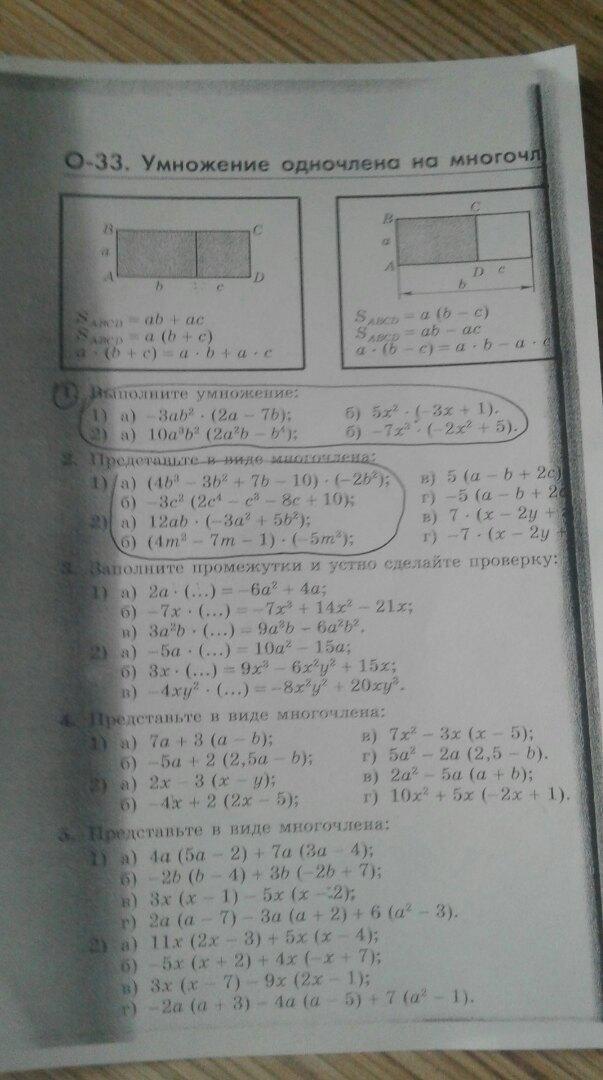 О-33. Умножение одночлена на многочл
B C
a
A D
b c
S_ABCD = ab + ac
S_ABCD = a (b + c)
a · (b + c) = a · b + a · c
B C
a
A D c
b
S_ABCD = a (b − c)
S_ABCD = ab − ac
a · (b − c) = a · b − a · c
1. Выполните умножение:
1) а) −3ab² · (2a − 7b); б) 5x² · (−3x + 1).
2) а) 10a³b² (2a²b − b⁴); б) −7x³ · (−2x² + 5).
2. Представьте в виде многочлена:
1) а) (4b³ − 3b² + 7b − 10) · (−2b²); в) 5 (a − b + 2c)
б) −3c² (2c⁴ − c³ − 8c + 10); г) −5 (a − b + 2c
2) а) 12ab · (−3a² + 5b²); в) 7 · (x − 2y +
б) (4m² − 7m − 1) · (−5m²); г) −7 · (x − 2y +
3. Заполните промежутки и устно сделайте проверку:
1) а) 2a · (...) = −6a² + 4a;
б) −7x · (...) = −7x³ + 14x² − 21x;
в) 3a²b · (...) = 9a³b − 6a²b².
2) а) −5a · (...) = 10a² − 15a;
б) 3x · (...) = 9x³ − 6x²y² + 15x;
в) −4xy² · (...) = −8x²y² + 20xy³.
4. Представьте в виде многочлена:
1) а) 7a + 3 (a − b); в) 7x² − 3x (x − 5);
б) −5a + 2 (2,5a − b); г) 5a² − 2a (2,5 − b).
2) а) 2x − 3 (x − y); в) 2a² − 5a (a + b);
б) −4x + 2 (2x − 5); г) 10x² + 5x (−2x + 1).
5. Представьте в виде многочлена:
1) а) 4a (5a − 2) + 7a (3a − 4);
б) −2b (b − 4) + 3b (−2b + 7);
в) 3x (x − 1) − 5x (x − 2);
г) 2a (a − 7) − 3a (a + 2) + 6 (a² − 3).
2) а) 11x (2x − 3) + 5x (x − 4);
б) −5x (x + 2) + 4x (−x + 7);
в) 3x (x − 7) − 9x (2x − 1);
г) −2a (a + 3) − 4a (a − 5) + 7 (a² − 1).